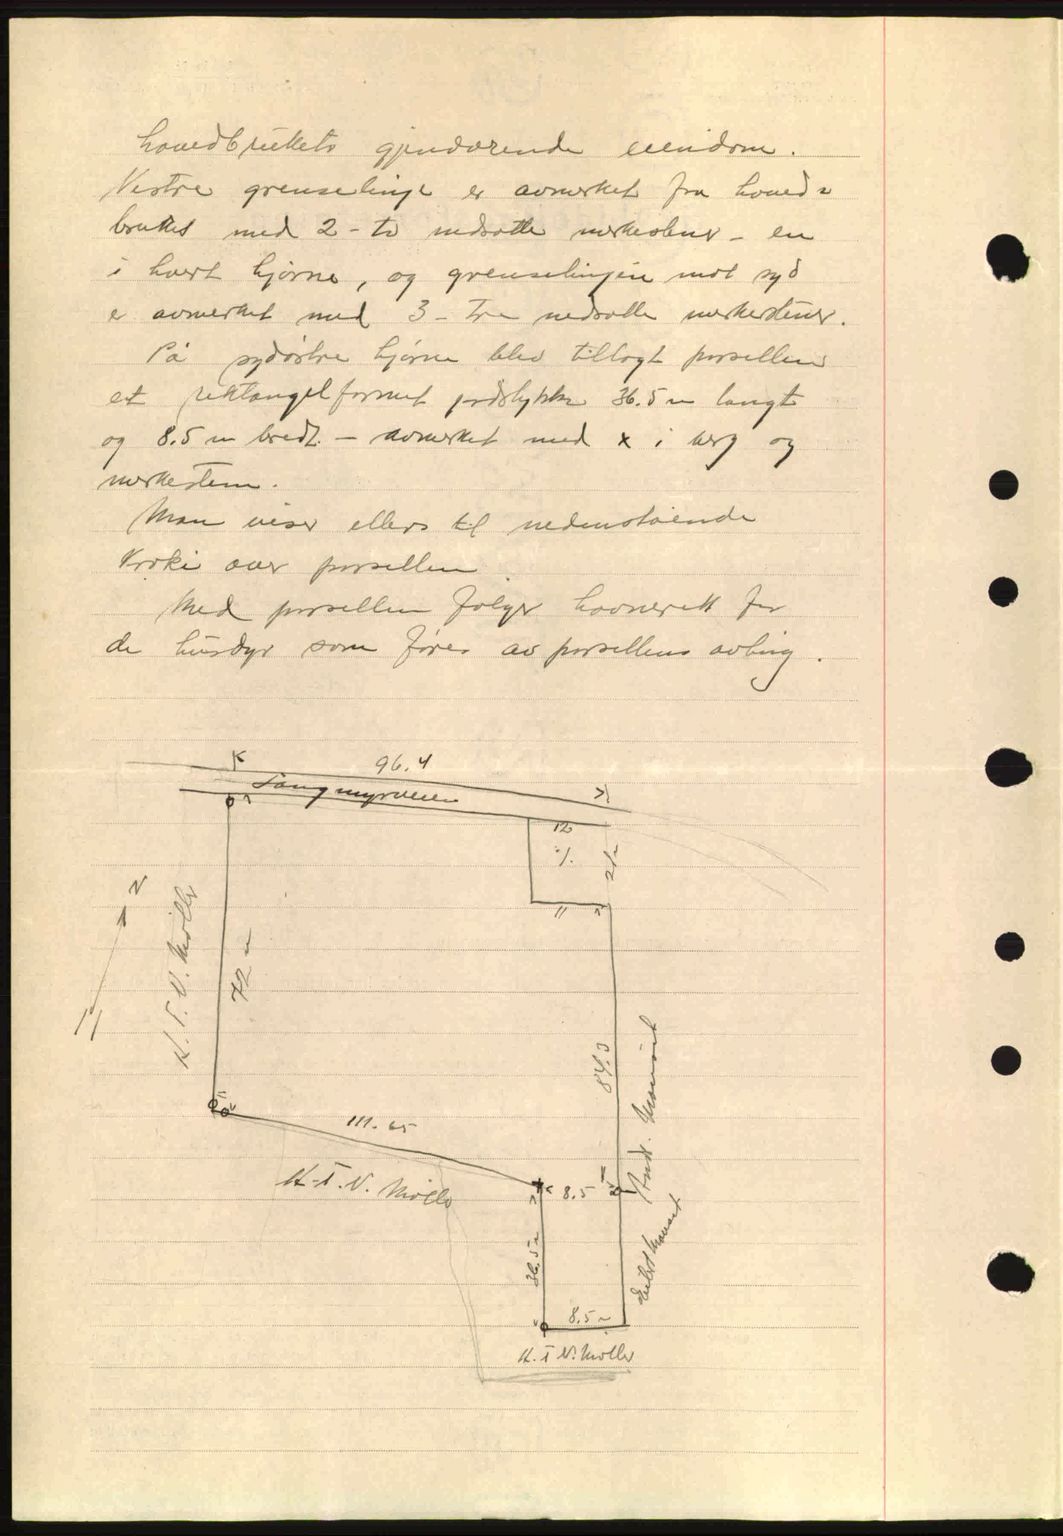 hovedbrukets gjenværende eiendom.
Vestre grenselinje er avmerket fra hoved=
bruket med 2 - to nedsatte merkestener - en
i hvert hjørne, og grenselinjen mot syd
er avmerket med 3 - tre nedsatte merkestener.
På sydøstre hjørne blev tillagt parsellen
et rektangelformet jordstykke 36.5 m langt
og 8.5 m bredt. - avmerket med x i berg og
merkesten.
Man viser ellers til nedenstående
kroki over parsellen
Med parsellen følger havnerett for
de husdyr som føres av parsellens avling.
96.4
Langmyrveien
12
·/.
21 m
11
N
K. T. N. Møller
72 m
84.3
111.65
K. T. N. Møller
8.5
And.
36.5 m
8.5 m
K. T. N. Møller